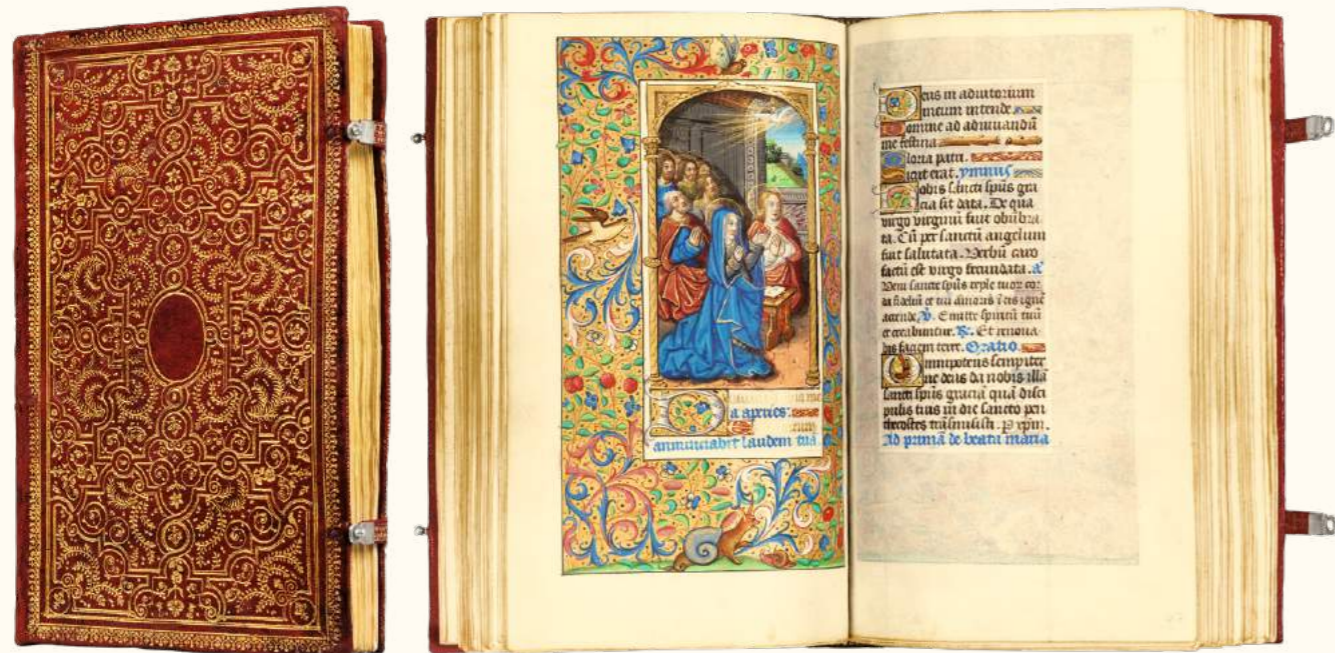 a aperies.
annunciabit laudem tuā
Deus in adiutorium
meum intende
Domine ad adiuuandū
me festina
Gloria patri.
Sicut erat. ymnus
Nobis sancti spūs gra
cia sit data. De qua
virgo virginū fuit obūbra
ta. Cū per sanctū angelum
fuit salutata. Verbū caro
factū est virgo fecundata. a
Veni sancte spūs reple tuor cor
da fideliū et tui amoris i eis ignē
accende. V. Emitte spiritū tuū
et creabuntur. R. Et renoua
bis faciem terre. Oratio
Omnipotens sempiter
ne deus da nobis illā
sancti spūs graciā quā disci
pulis tuis in die sancto pen
thecostes trāsmisisti. P xpm.
Ad primā de beata maria